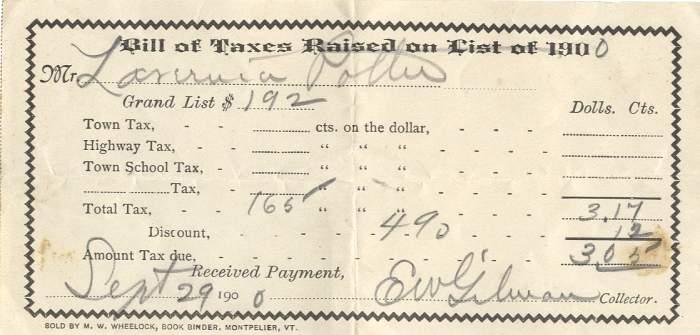 Bill of Taxes Raised on List of 1900
Mr. Potter
Grand List $ 192 Dolls. Cts.
Town Tax, - - cts. on the dollar, - - -
Highway Tax, - - " " " - - -
Town School Tax, - " " " - - -
Tax, - - " " " - - -
Total Tax, - - 165 " " " - - - 3.17
Discount, - - - 4% - - - 12
Amount Tax due, - - - - - - - 3.05
Received Payment,
Sept 29 1900 E W Gilman Collector.
SOLD BY M. W. WHEELOCK, BOOK BINDER, MONTPELIER, VT.